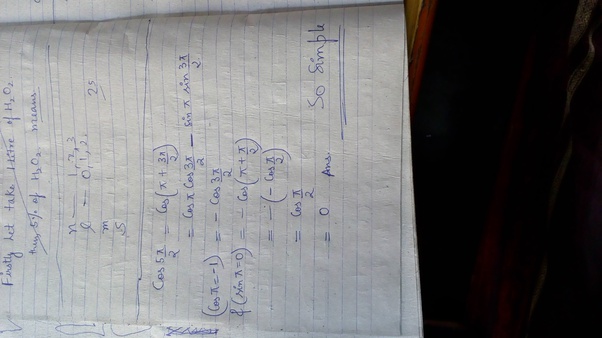 Firstly let take 1 litre of H₂O₂.
thus 5% of H₂O₂ means
n — 1, 2, 3
l — 0, 1, 2.
m
s
25
Cos 5π/2 = Cos(π + 3π/2)
= Cosπ Cos 3π/2 − sinπ sin 3π/2
(Cosπ = -1) = − Cos 3π/2
& (sinπ = 0) = − Cos(π + π/2)
= −(− Cos π/2)
= Cos π/2
= 0 Ans.
So Simple